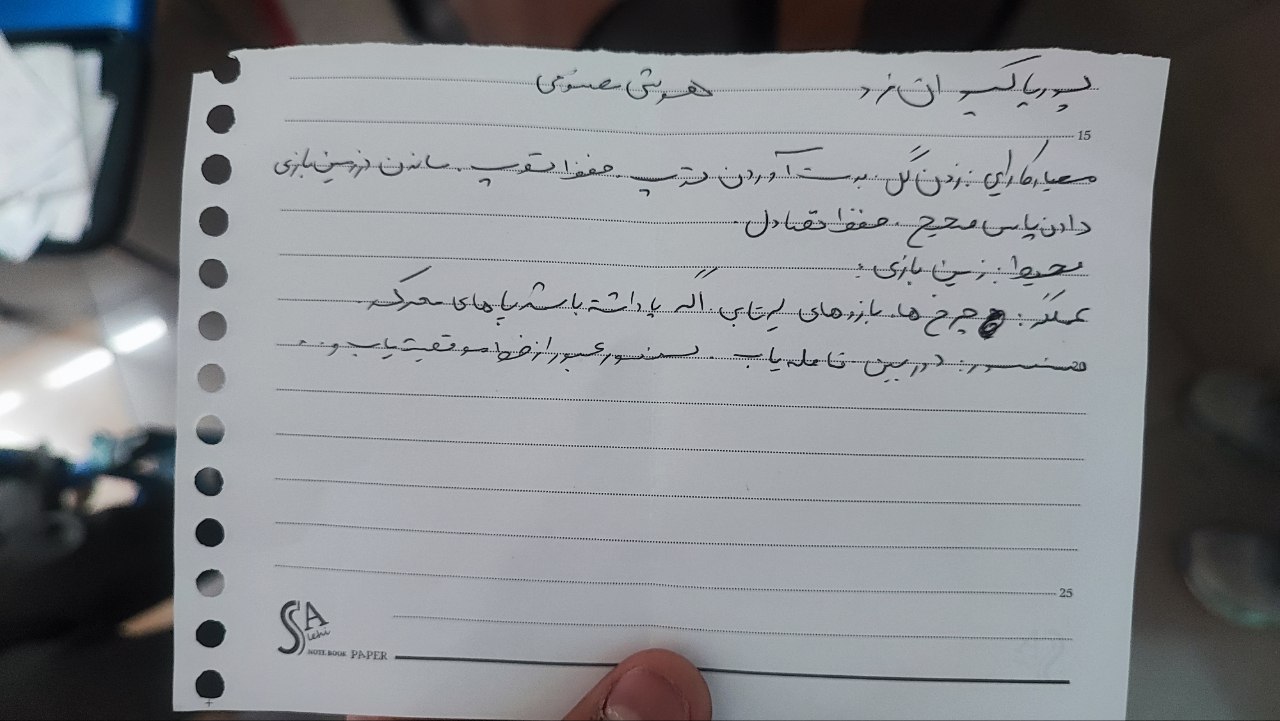 پوریا کیوان نژاد هوش مصنوعی
15
معیار کارایی: زدن گل. بدست آوردن توپ. حفظ توپ. ماندن در زمین بازی
دادن پاس صحیح. حفظ تعادل.
محیط: زمین بازی.
عملگر: چرخ ها. بازوهای پرتابی. اگر پا داشته باشد پاهای متحرک.
20
سنسور: دوربین. فاصله یاب. سنسور عبور از خط. موقعیت یاب و ...
25
SSA
lehi
NOTE BOOK PAPER